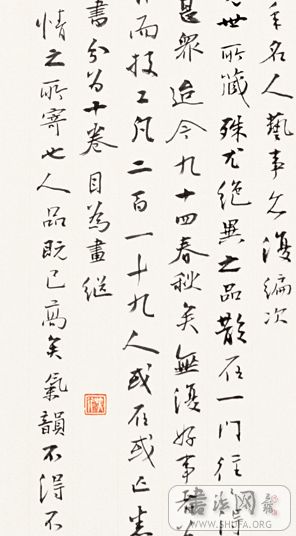 名人藝事 復編次
世所藏殊尤絕異之品散在一門往
甚衆迨今九十四春秋矣無復好事者
而技工凡二百一十九人或在或亡悉
書分為十卷目為畫繼
情之所寄也人品既已高矣氣韻不得不
书法网
WWW.SHUFA.ORG